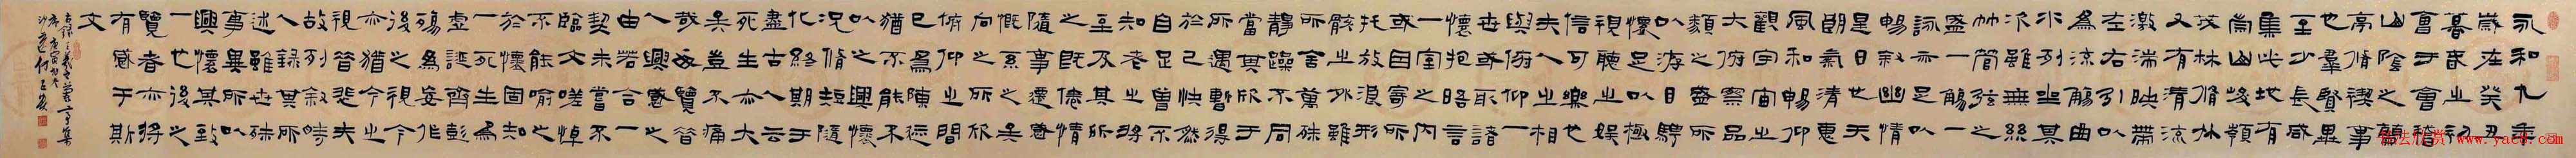 永和九年
歲在癸丑
暮春之初
會于會稽
山陰之蘭
亭脩禊事
也羣賢畢
至少長咸
集此地有
崇山峻領
茂林脩竹
又有清流
激湍映帶
左右引以
為流觴曲
水列坐其
次雖無絲
竹管弦之
盛一觴一
詠亦足以
暢叙幽情
是日也天
朗氣清惠
風和暢仰
觀宇宙之
大俯察品
類之盛所
以游目騁
懷足以極
視聽之娛
信可樂也
夫人之相
與俯仰一
世或取諸
懷抱晤言
一室之內
或因寄所
托放浪形
骸之外雖
舍萬殊
靜躁不同
當其欣于
所遇暫得
於己快然
自足曾不
知老之將
至及其所
之既倦情
隨事遷感
慨系之矣
向之所欣
俯仰之間
已為陳迹
猶不能不
以之興懷
況脩短隨
化終期于
盡古人云
死生亦大
矣豈不痛
哉每覽昔
人興感之
由若合一
契未嘗不
臨文嗟悼
不能喻之
於懷固知
一死生為
虛誕齊彭
殤為妄作
後之視今
亦猶今之
視昔悲夫
故列叙時
人錄其所
述雖世殊
事異所以
興懷其致
一也後之
覽者亦將
有感于斯
文
书法欣赏 www.yac8.com